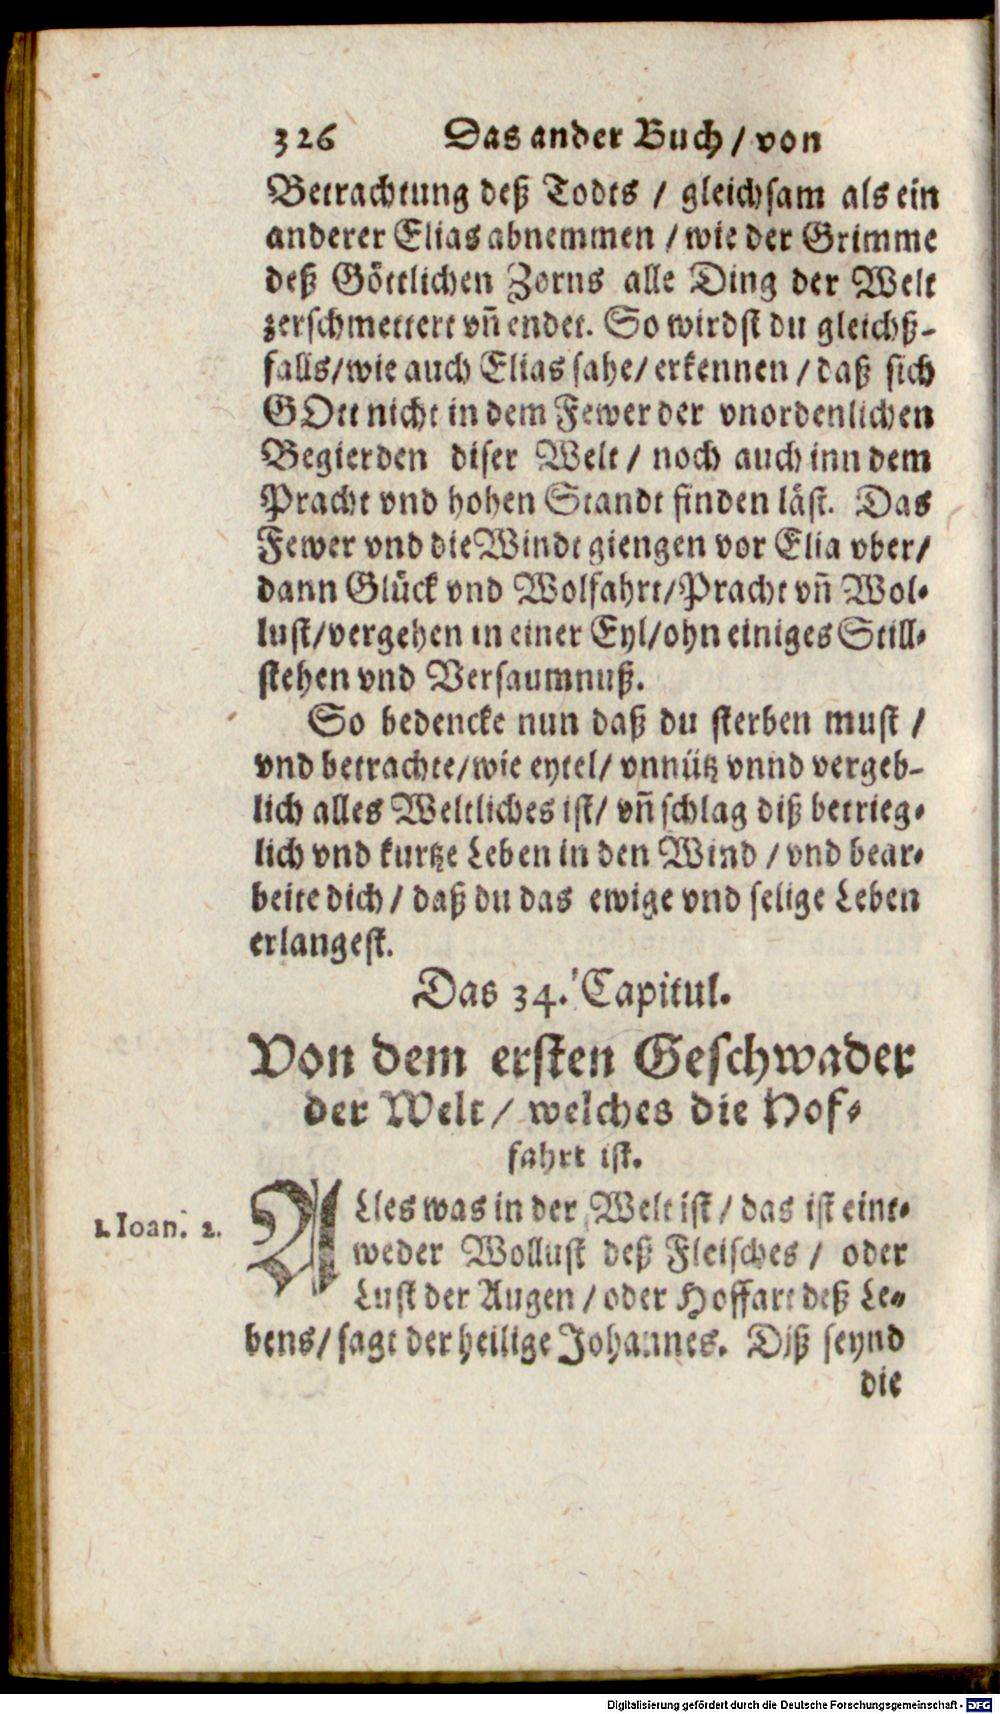 326 Das ander Buch / von
Betrachtung deß Todts / gleichsam als ein
anderer Elias abnemmen / wie der Grimme
deß Göttlichen Zorns alle Ding der Welt
zerschmettert vñ endet. So wirdst du gleichß-
falls/wie auch Elias sahe/ erkennen / daß sich
GOtt nicht in dem Fewer der vnordenlichen
Begierden diser Welt / noch auch inn dem
Pracht vnd hohen Standt finden läst. Das
Fewer vnd die Windt giengen vor Elia vber/
dann Glück vnd Wolfahrt/Pracht vñ Wol-
lust/vergehen in einer Eyl/ohn einiges Still-
stehen vnd Versaumnuß.
So bedencke nun daß du sterben must /
vnd betrachte/wie eytel/ vnnütz vnnd vergeb-
lich alles Weltliches ist/ vñ schlag diß betrieg-
lich vnd kurtze Leben in den Wind / vnd bear-
beite dich / daß du das ewige vnd selige Leben
erlangest.
Das 34. Capitul.
Von dem ersten Geschwader
der Welt / welches die Hof-
fahrt ist.
ALles was in der Welt ist / das ist eint-
1. Ioan. 2.
weder Wollust deß Fleisches / oder
Lust der Augen / oder Hoffart deß Le-
bens/ sagt der heilige Johannes. Diß seynd
die
Digitalisierung gefördert durch die Deutsche Forschungsgemeinschaft - DFG